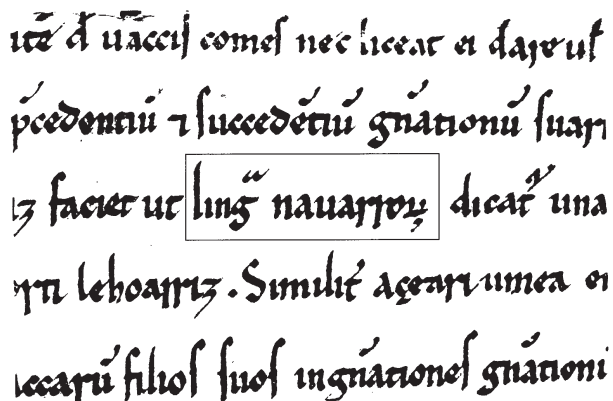 itē d̄ uaccis comes nec liceat ei dare ul̄
p̄cedentiū ⁊ succedētiū gn̄ationū suarı
iz faciet ut lingᵃ nauarroꝝ dicat᷑ una
rti lehoarriz . Similit̄ açeari umea ei
accarū filios suos in gn̄ationes gn̄ationi